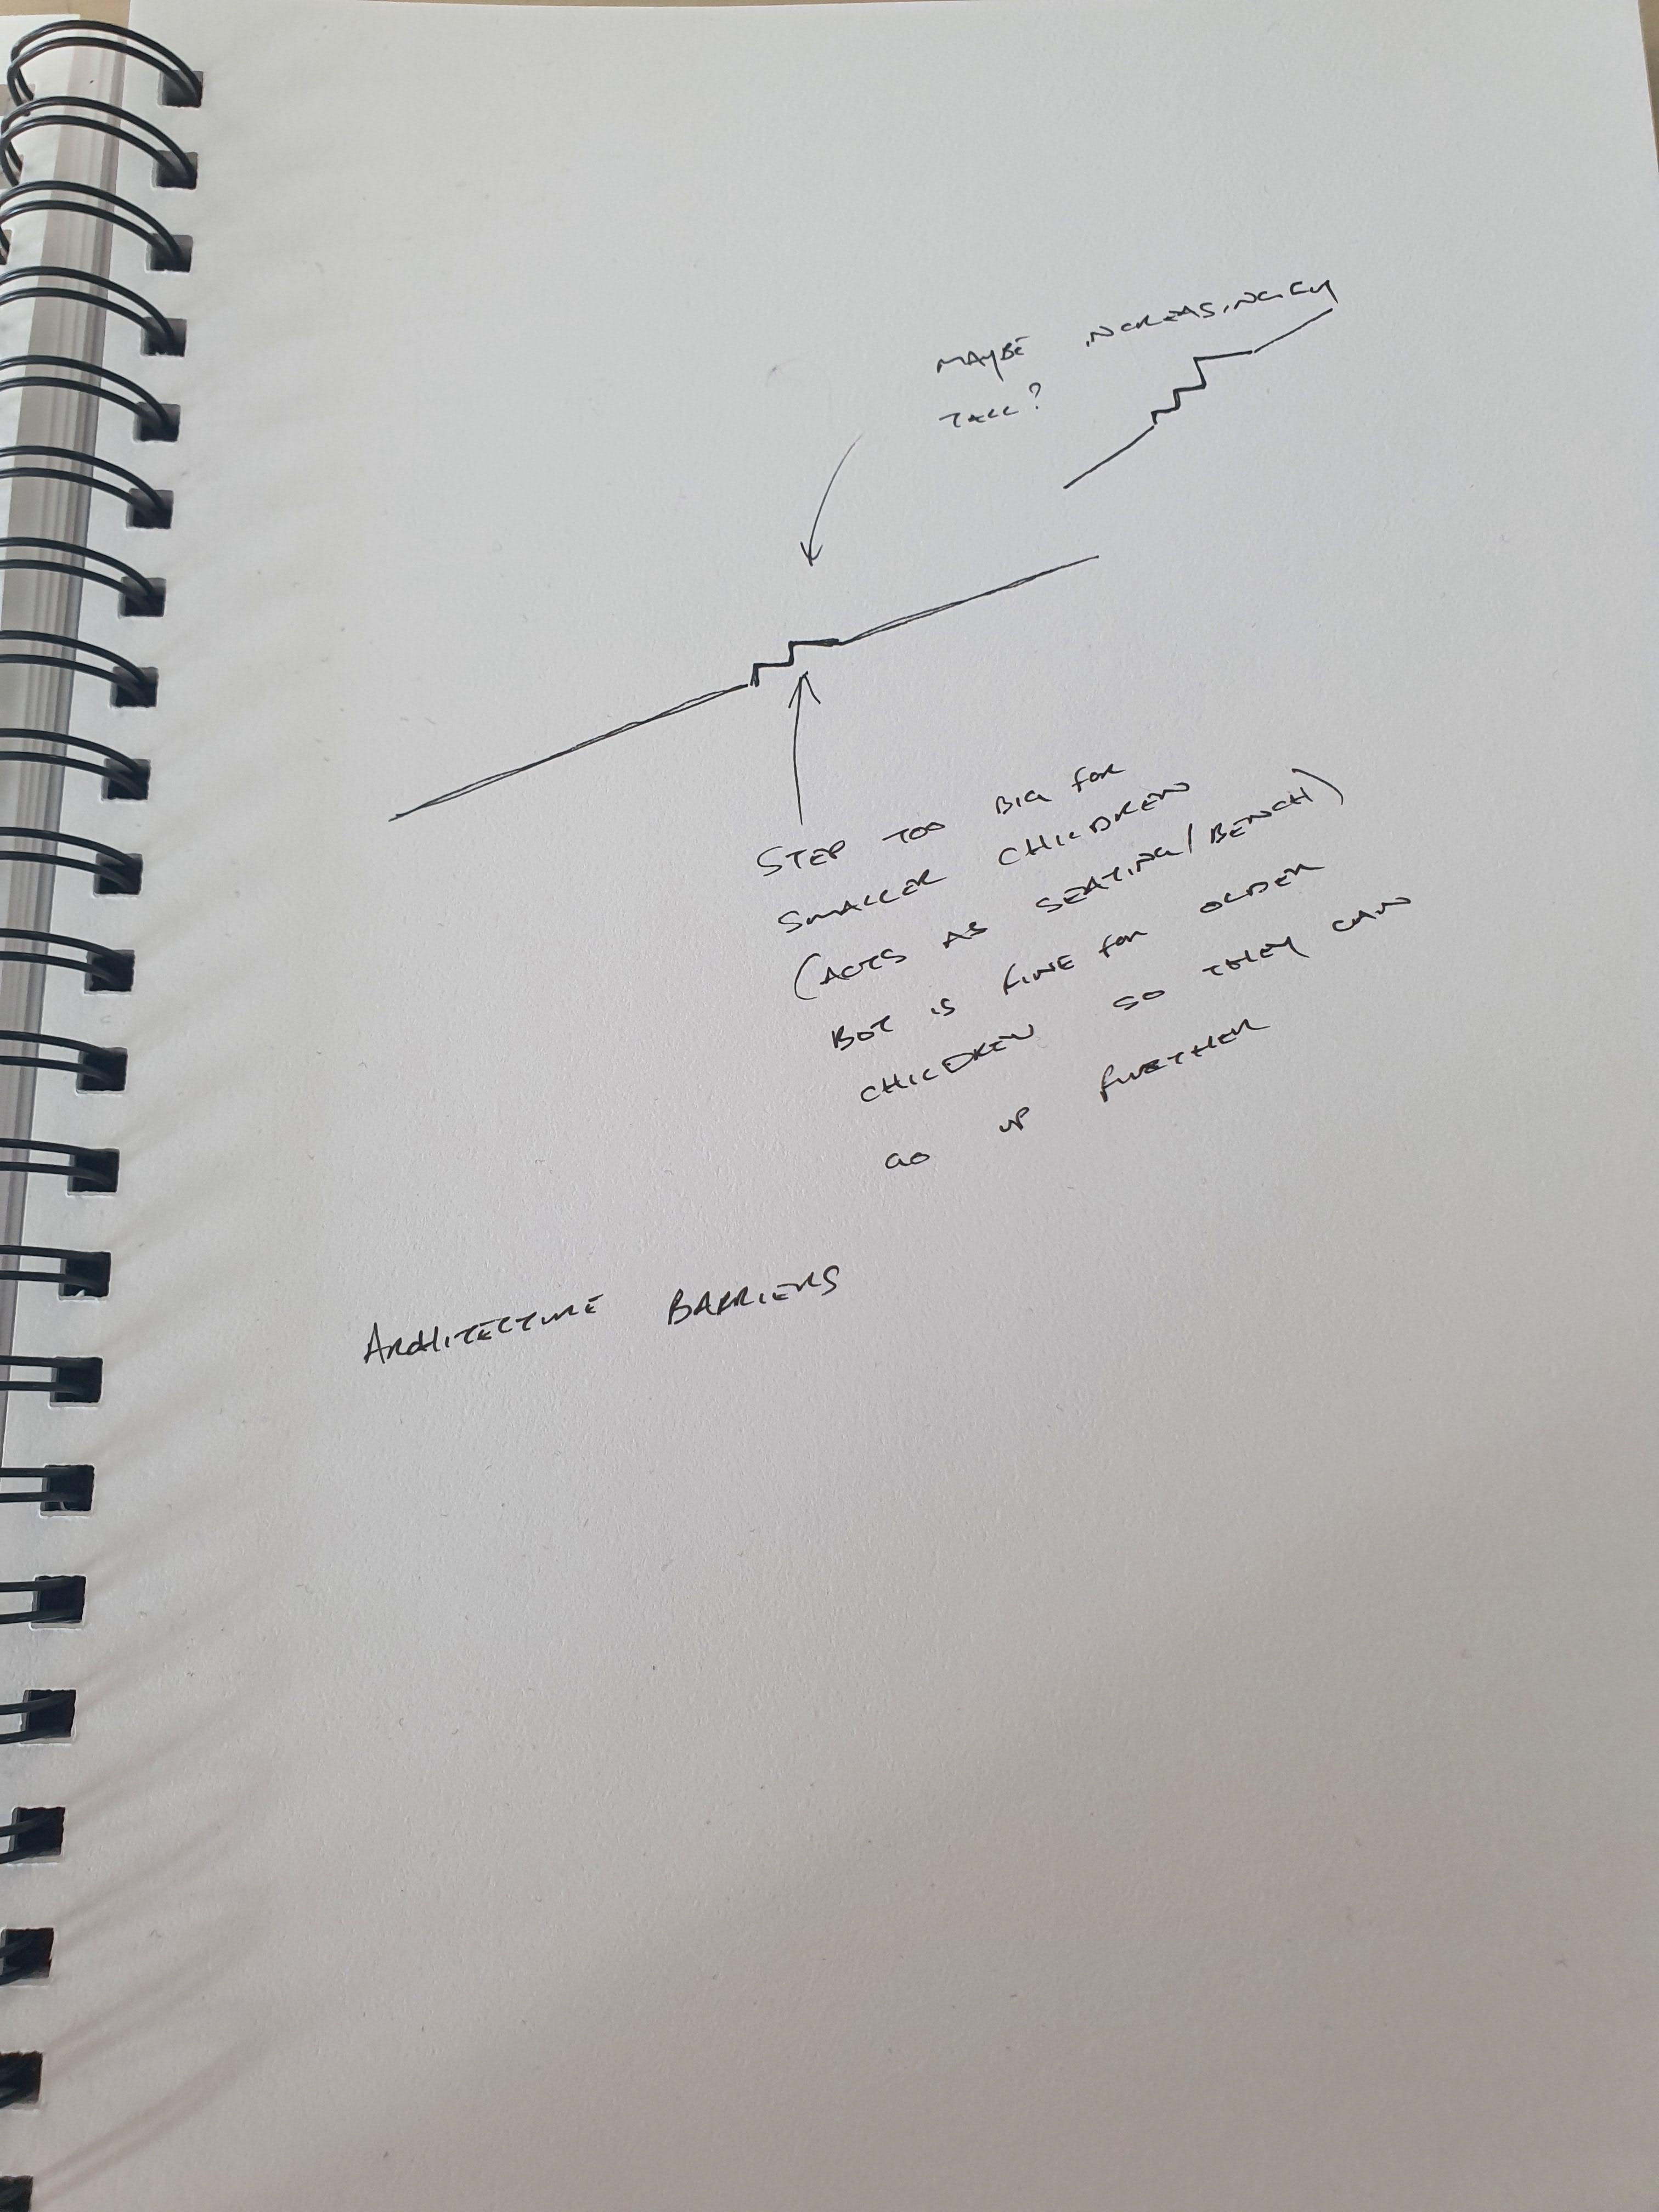 MAYBE INCREASINGLY
TALL?
STEP TOO BIG FOR
SMALLER CHILDREN
(ACTS AS SEATING/BENCH)
BUT IS FINE FOR OLDER
CHILDREN SO THEY CAN
GO UP FURTHER
ARCHITECTURE BARRIERS